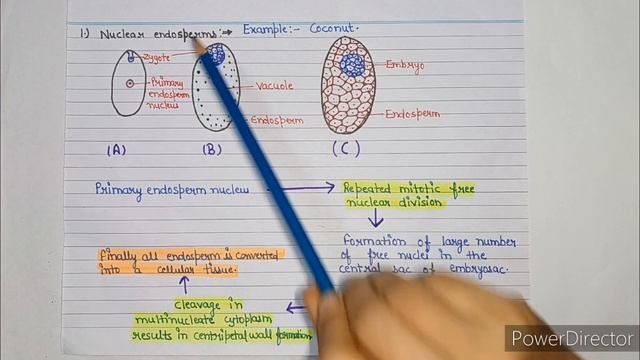 1.) Nuclear endosperms:→ Example:- Coconut.
Zygote
Primary
endosperm
nucleus
Vacuole
Endosperm
Embryo
Endosperm
(A) (B) (C)
Primary endosperm nucleus → Repeated mitotic free
nuclear division
Formation of large number
of free nuclei in the
central sac of embryosac.
Finally all endosperm is converted
into a cellular tissue.
cleavage in
multinucleate cytoplasm
results in centripetal wall formation
PowerDirector